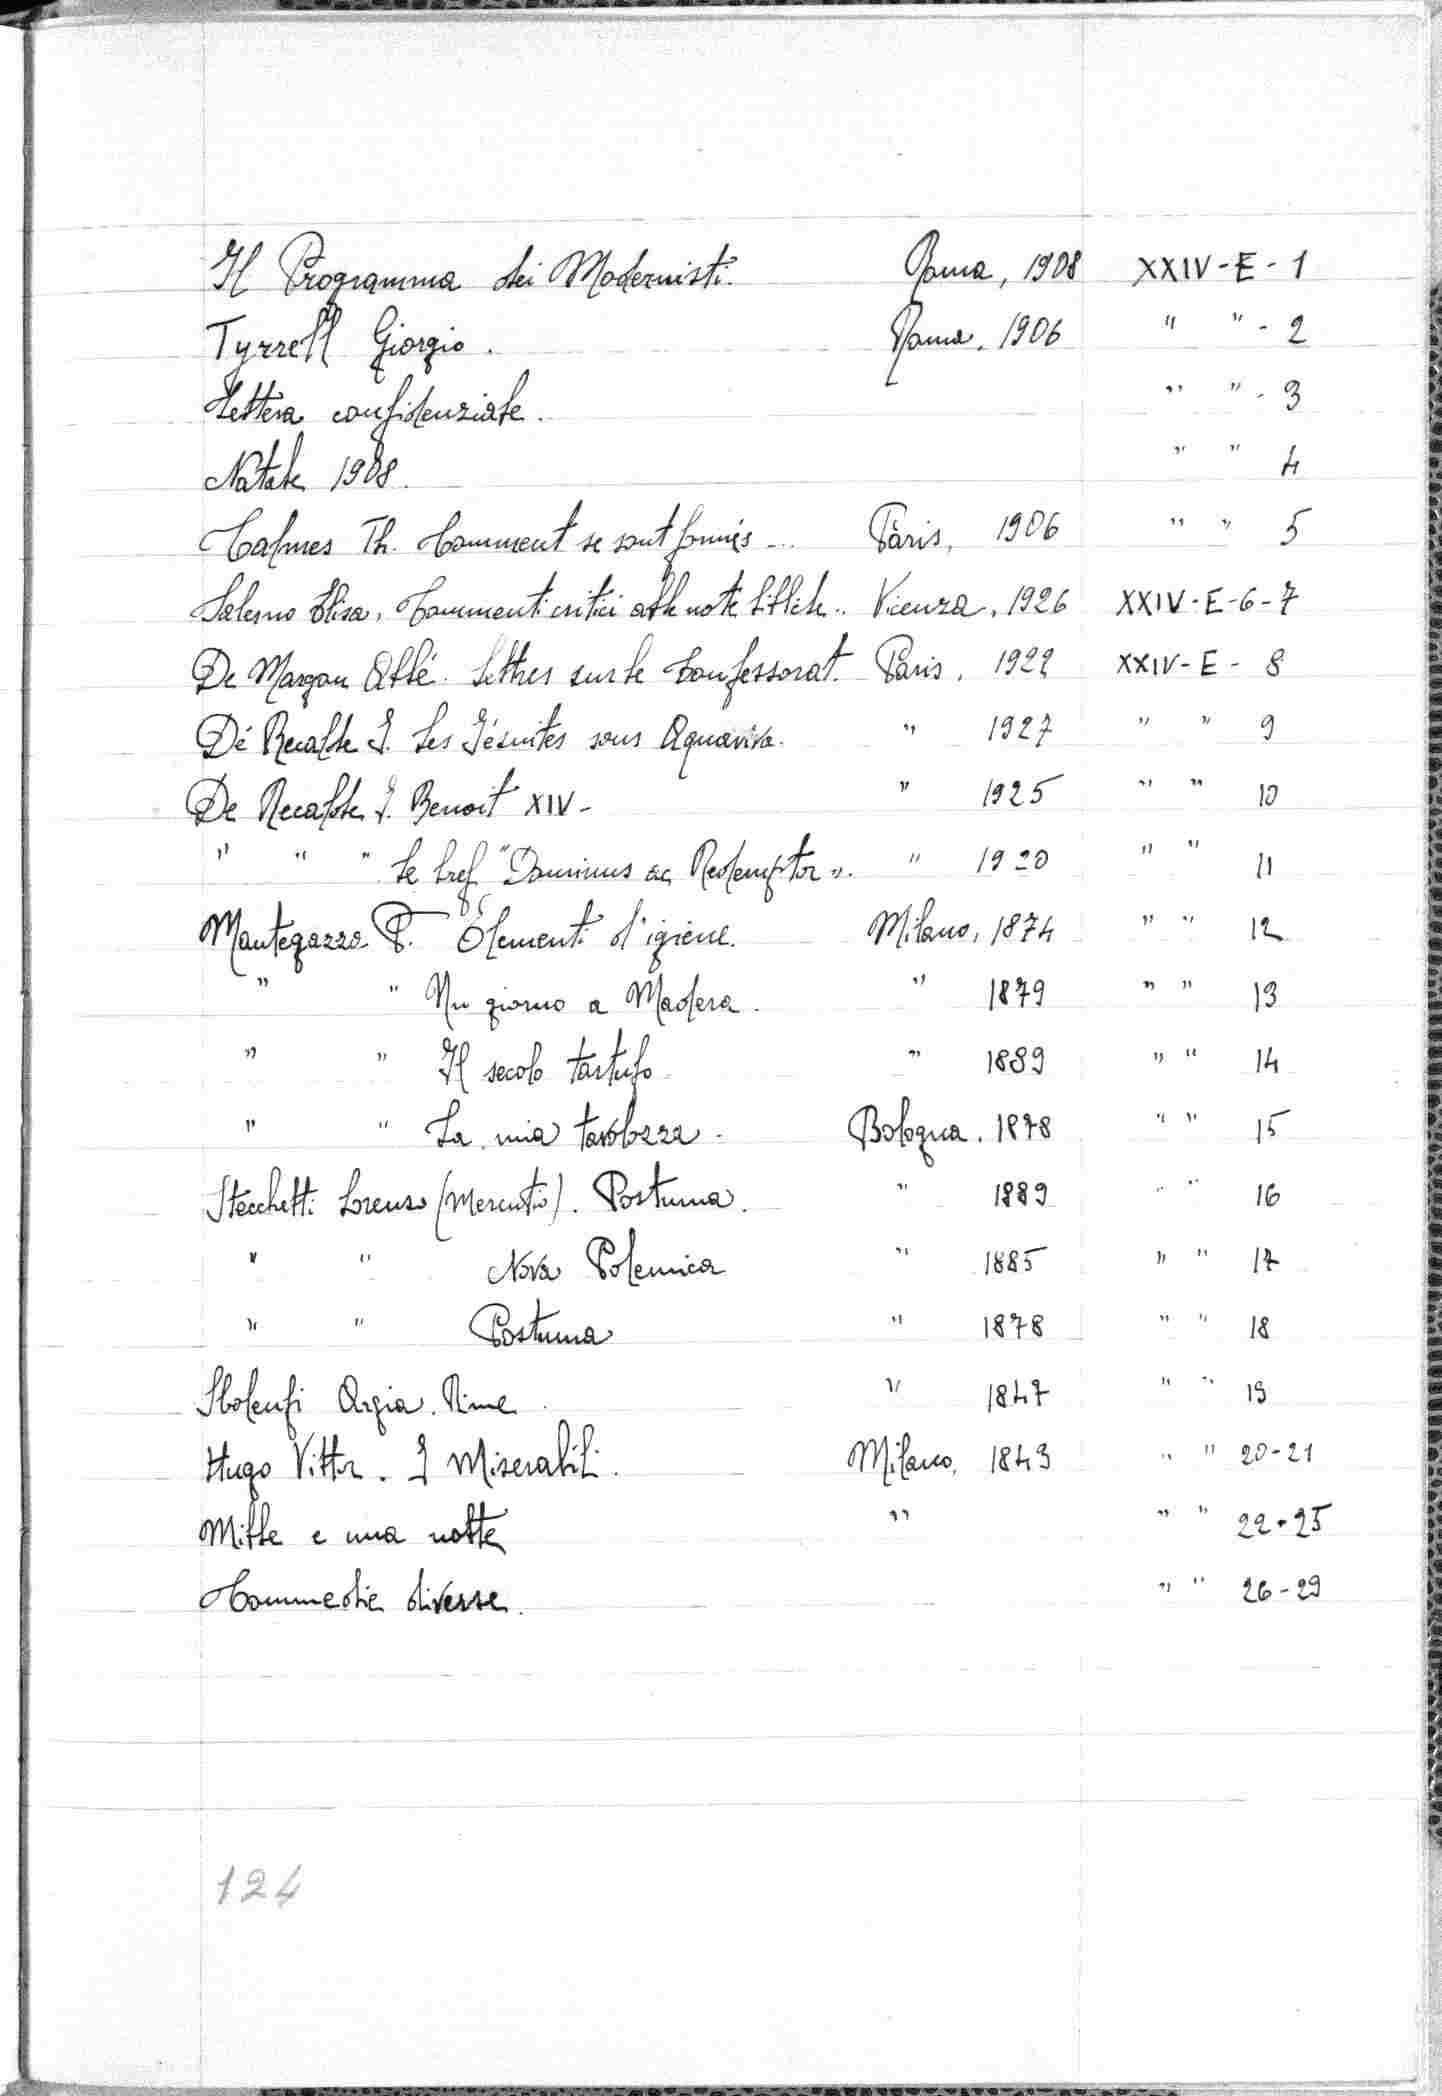 Il Programma dei Modernisti. Roma, 1908 XXIV-E-1
Tyrrell Giorgio. Roma, 1906 " " - 2
Lettera confidenziale. " " - 3
Natale 1908. " " 4
Calmes Th. Comment se sont formés ... Paris, 1906 " " 5
Salerno Elisa, Commenti critici alle note bibliche.. Vicenza, 1926 XXIV-E-6-7
De Margon Abbé. Lettres sur le Confessorat. Paris, 1922 XXIV-E-8
Dé Recalde I. Les Jésuites sous Aquaviva. " 1927 " " 9
De Recalde I. Benoit XIV- " 1925 " " 10
" " " Le bref "Dominus ac Redemptor". " 1920 " " 11
Mantegazza P. Elementi d'igiene. Milano, 1874 " " 12
" " Un giorno a Madera. " 1879 " " 13
" " Il secolo tartufo " 1889 " " 14
" " La mia tavolozza. Bologna, 1878 " " 15
Stecchetti Lorenzo (Mercutio). Postuma. " 1889 " " 16
" " Nova Polemica " 1885 " " 17
" " Postuma " 1878 " " 18
Sbolenfi Argia. Rime. " 1847 " " 19
Hugo Vittor. I Miserabili. Milano, 1843 " " 20-21
Mille e una notte " " " 22-25
Commedie diverse. " " 26-29
124